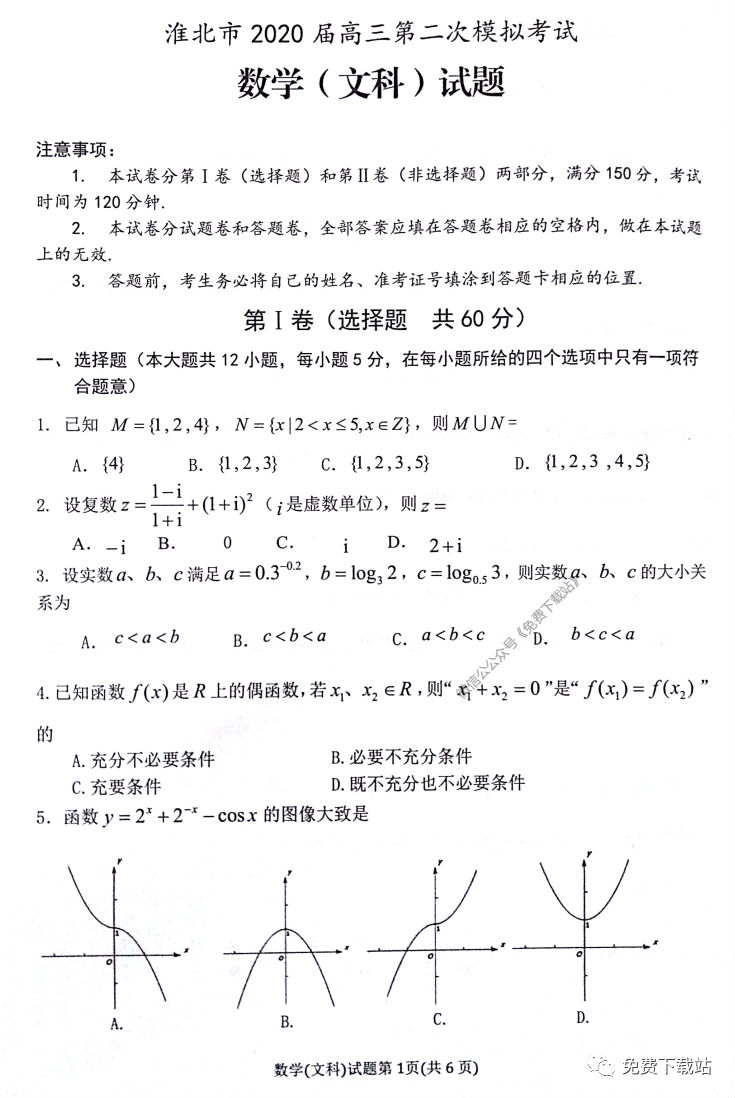 淮北市 2020 届高三第二次模拟考试
数学（文科）试题
注意事项：
1. 本试卷分第Ⅰ卷（选择题）和第Ⅱ卷（非选择题）两部分，满分 150 分，考试
时间为 120 分钟.
2. 本试卷分试题卷和答题卷，全部答案应填在答题卷相应的空格内，做在本试题
上的无效.
3. 答题前，考生务必将自己的姓名、准考证号填涂到答题卡相应的位置.
第Ⅰ卷（选择题 共 60 分）
一、选择题（本大题共 12 小题，每小题 5 分，在每小题所给的四个选项中只有一项符
合题意）
1. 已知 M = {1,2,4}，N = {x|2<x≤5,x∈Z}，则 M∪N =
A. {4} B. {1,2,3} C. {1,2,3,5} D. {1,2,3,4,5}
2. 设复数 z = (1-i)/(1+i) + (1+i)²（i 是虚数单位），则 z =
A. -i B. 0 C. i D. 2+i
3. 设实数 a、b、c 满足 a = 0.3^{-0.2}，b = log₃ 2，c = log_{0.5} 3，则实数 a、b、c 的大小关
系为
A. c<a<b B. c<b<a C. a<b<c D. b<c<a
微信公众号《免费下载站》
4. 已知函数 f(x) 是 R 上的偶函数，若 x₁、x₂ ∈ R，则“ x₁ + x₂ = 0 ”是“ f(x₁) = f(x₂) ”
的
A. 充分不必要条件 B. 必要不充分条件
C. 充要条件 D. 既不充分也不必要条件
5. 函数 y = 2ˣ + 2⁻ˣ - cos x 的图像大致是
y 1 O x
y 1 O x
y 1 O x
y 1 O x
A. B. C. D.
数学(文科)试题第 1页(共 6 页)
免费下载站